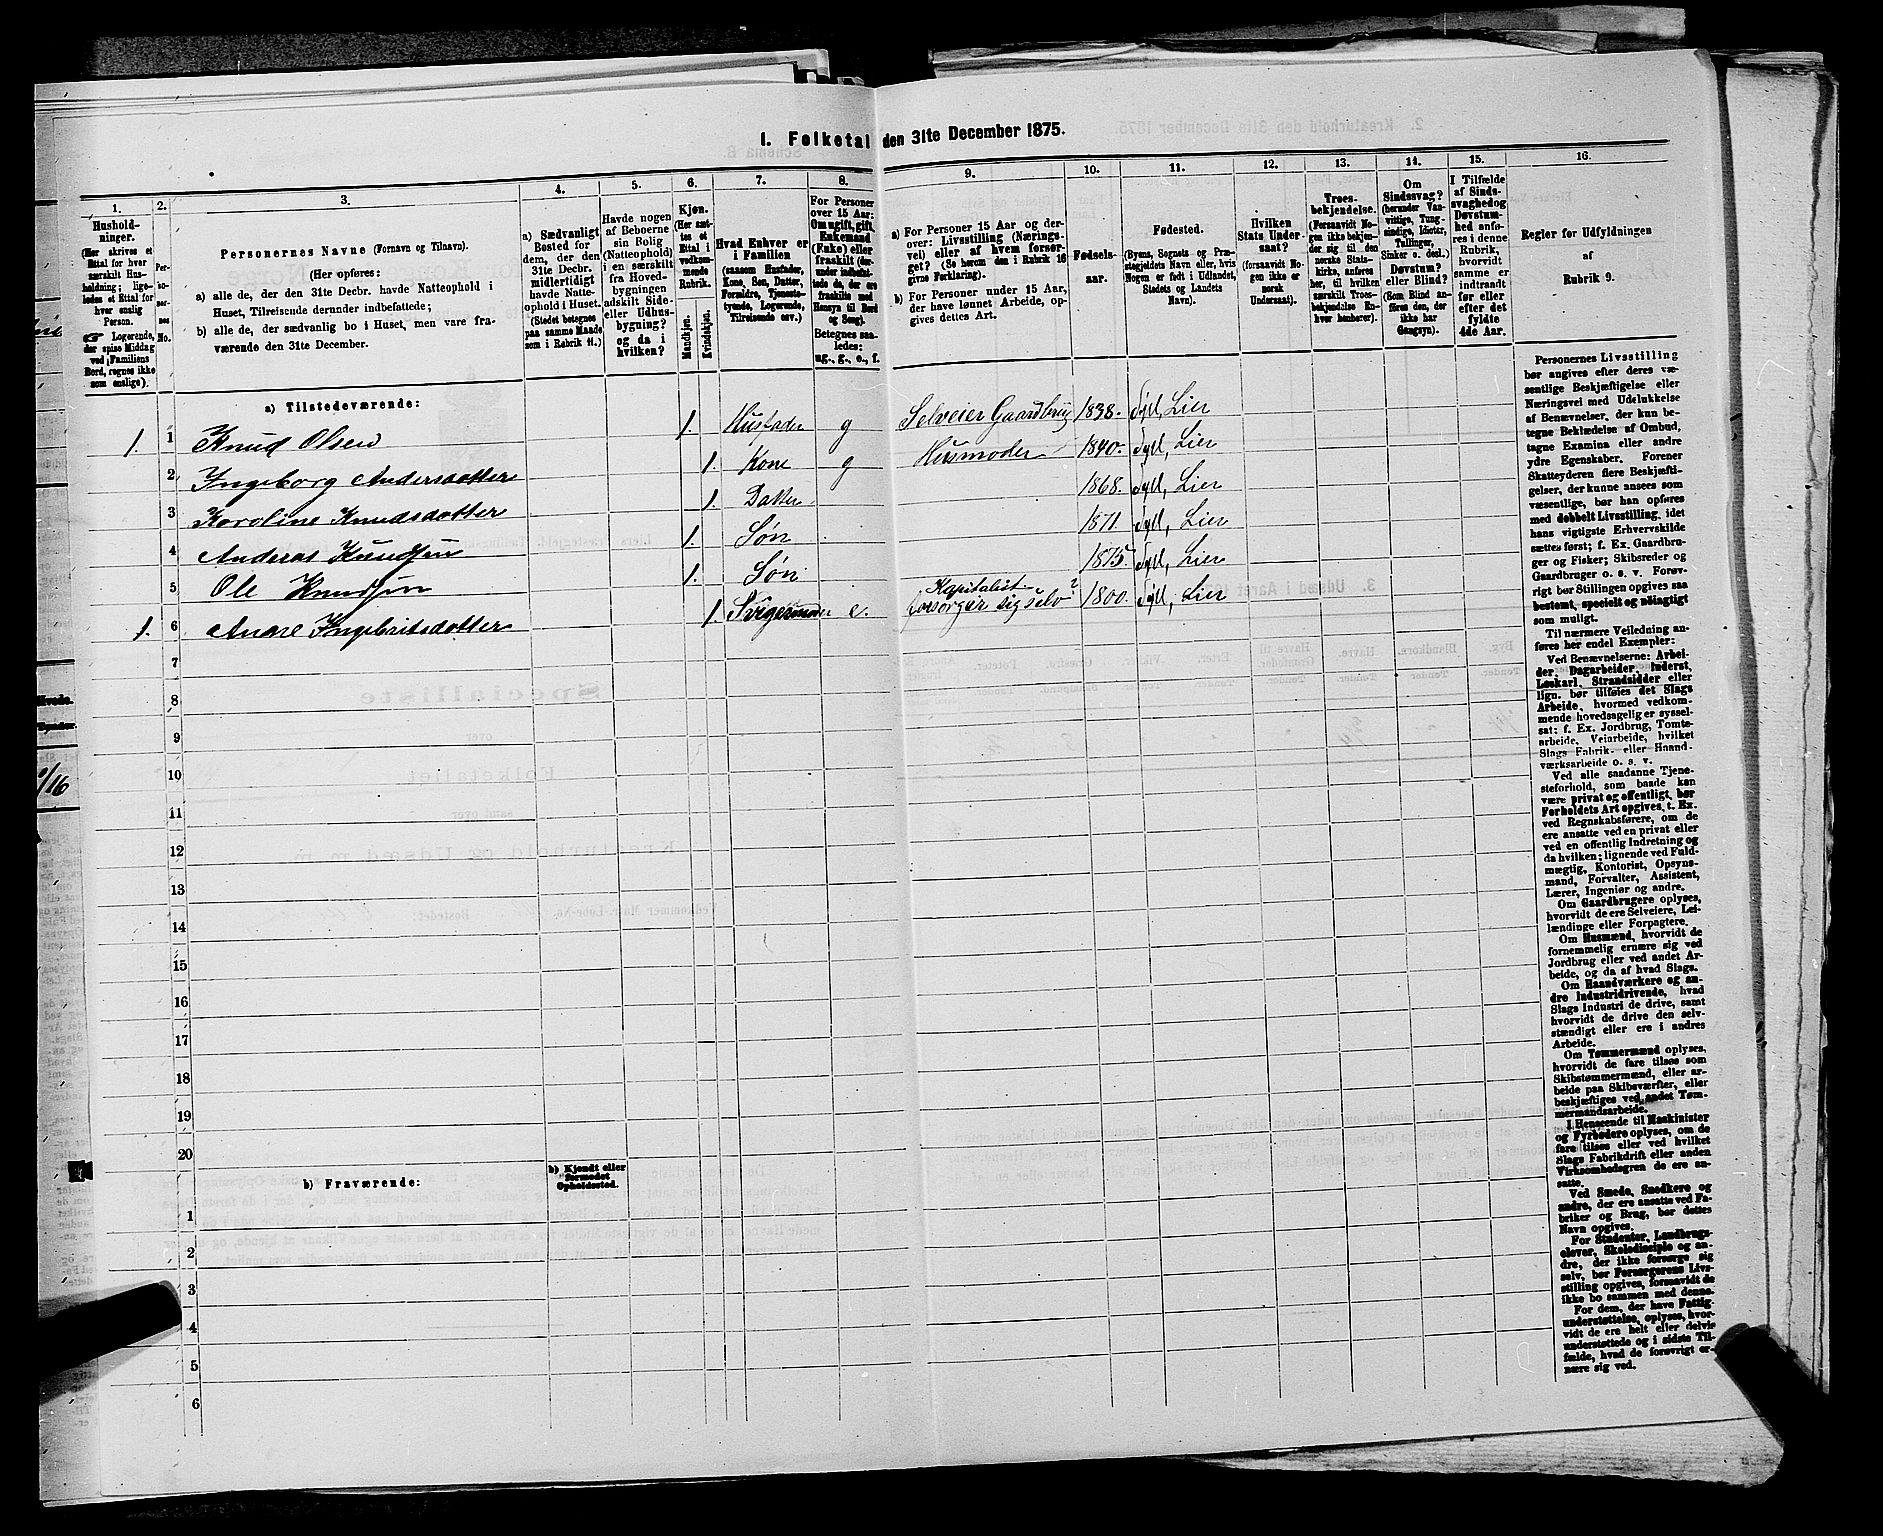 1. Folketal den 31te December 1875.
1. 2. 3. 4. 5. 6. 7. 8. 9. 10. 11. 12. 13. 14. 15. 16.
Hushold-
ninger.
(Her skrives et
Ettal for hver
særskilt Hus-
holdning; lige-
ledes et Ettal for
hver enslig
Person.
Logerende,
der spise Middag
ved Familiens
Bord, regnes ikke
som enslige).
Personernes Navne (Fornavn og Tilnavn).
(Her opføres:
a) alle de, der den 31te Decbr. havde Natteophold i
Huset, Tilreisende derunder indbefattede;
b) alle de, der sædvanlig bo i Huset, men vare fra-
værende den 31te December.
a) Sædvanligt
Bosted for
dem, der den
31te Decbr.
midlertidigt
havde Natte-
ophold i Huset.
(Stedet betegnes
paa samme Maade
som i Rubrik 11.)
Havde nogen
af Beboerne
sin Bolig
(Natteophold)
i en særskilt
fra Hoved-
bygningen
adskilt Side-
eller Udhus-
bygning?
og da i
hvilken?
Kjøn.
(Her sæt-
tes et
Ettal i
vedkom-
mende
Rubrik.
Mandkjøn.
Kvindekjøn.
Hvad Enhver er
i Familien
(saasom Husfader,
Kone, Søn, Datter,
Forældre, Tjeneste-
tyende, Logerende,
Tilreisende osv.)
For Personer
over 15 Aar:
Om ugift, gift,
Enkemand
(Enke) eller
fraskilt (der-
under indbefat-
tede de, der ere
fraskilte med
Hensyn til Bord
og Seng).
Betegnes saa-
ledes:
ug., g., e., f.
a) For Personer 15 Aar og der-
over: Livsstilling (Nærings-
vei) eller af hvem forsør-
get? (Se herom den i Rubrik 16
givne Forklaring).
b) For Personer under 15 Aar,
der have lønnet Arbeide, op-
gives dettes Art.
Fødsels-
aar.
Fødested.
(Byens, Sognets og Præ-
stegjeldets Navn eller, hvis
Nogen er født i Udlandet,
Stedets og Landets
Navn).
Hvilken
Stats Under-
saat?
(forsaavidt No-
gen ikke er
norsk
Undersaat).
Troes-
bekjendelse.
(Forsaavidt No-
gen ikke bekjen-
der sig til den
norske Stats-
kirke, anføres
her, til hvilken
særskilt Troes-
bekjendelse En-
hver henhører).
Om
Sindssvag?
(herunder Van-
vittige, Tung-
sindige, Idioter,
Tullinger,
Sinker o. desl.)
Døvstum?
eller Blind?
(Som Blind an-
føres den, der
ikke har
Gangsyn).
I Tilfælde
af Sinds-
svaghed og
Døvstum-
hed anfø-
res i denne
Rubrik,
hvorvidt
samme er
indtraadt
før eller
efter det
fyldte
4de Aar.
Regler for Udfyldningen
af
Rubrik 9.
a) Tilstedeværende:
1. 1 Knud Olsen 1. Husfader g Selveier Gaardbrug 1838. Syll, Lier
2 Ingeborg Andersdotter 1. Kone g Husmoder 1840. Syll, Lier
3 Karoline Knudsdotter 1. Datter 1868. Syll, Lier
4 Andreas Knudsen 1. Søn 1871. Syll, Lier
5 Ole Knudsen 1. Søn 1875. Syll, Lier
Kapitalist
1. 6 Anne Ingebritsdotter 1. e. forsørger sig selv? 1800. Syll, Lier
7
8
9
10
11
12
13
14
15
16
17
18
19
20
b) Fraværende:
b) Kjendt eller
formodet
Opholdssted.
1
2
3
4
5
6
Personernes Livsstilling
bør angives efter deres væ-
sentlige Beskjæftigelse eller
Næringsvei med Udelukkelse
af Benævnelser, der kun be-
tegne Beklædelse af Ombud,
tagne Examina eller andre
ydre Egenskaber. Forener
Skatteyderen flere Beskjæfti-
gelser, der kunne ansees som
væsentlige, bør han opføres
med dobbelt Livsstilling, idet
hans vigtigste Erhvervskilde
sættes først; f. Ex. Gaardbru-
ger og Fisker; Skibsreder og
Gaardbruger o. s. v. Forøv-
rigt bør Stillingen opgives saa
bestemt, specielt og nøiagtigt
som muligt.
Til nærmere Veiledning an-
føres her endel Exempler:
Ved Benævnelserne: Arbei-
der, Dagarbeider, Inderst,
Løskarl, Strandsidder eller
lign. bør tilføies det Slags
Arbeide, hvormed vedkom-
mende hovedsagelig er syssel-
sat; f. Ex. Jordbrug, Tomte-
arbeide, Veiarbeide, hvilket
Slags Fabrik- eller Haand-
værksarbeide o. s. v.
Ved alle saadanne Tjene-
steforhold, som baade kan
være privat og offentligt, bør
Forholdets Art opgives, t. Ex.
ved Regnskabsførere, om de
ere ansatte ved en privat eller
ved en offentlig Indretning og
da hvilken; lignende ved Fuld-
mægtig, Kontorist, Opsyns-
mand, Forvalter, Assistent,
Lærer, Ingeniør og andre.
Om Gaardbrugere oplyses,
hvorvidt de ere Selveiere, Lei-
lændinge eller Forpagtere.
Om Husmænd, hvorvidt de
fornemmelig ernære sig ved
Jordbrug eller ved andet Ar-
beide, og da af hvad Slags.
Om Haandværkere og an-
dre Industridrivende, hvad
Slags Industri de drive, samt
hvorvidt de drive den selv-
stændigt eller ere i andres
Arbeide.
Om Tømmermænd oplyses,
hvorvidt de fare tilsøs som
Skibstømmermænd, eller ar-
beide paa Skibsværfter, eller
beskjæftiges ved andet Tøm-
mermandsarbeide.
I Henseende til Maskinister
og Fyrbødere oplyses, om de
fare tilsøs eller ved hvilket
Slags Fabrikdrift eller anden
Virksomhedsgren de ere an-
satte.
Ved Smede, Snedkere og
andre, der ere ansatte ved Fa-
briker og Brug, bør dettes
Navn opgives.
For Studenter, Landbrugs-
elever, Skoledisciple og an-
dre, der ikke forsørge sig
selv, bør Forsørgerens Livs-
stilling opgives, forsaavidt de
ikke bo sammen med denne.
For dem, der have Fattig-
understøttelse, oplyses, hvor-
vidt de ere helt eller delvis
understøttede og i sidste Til-
fælde, hvad de forøvrigt er-
nære sig ved.